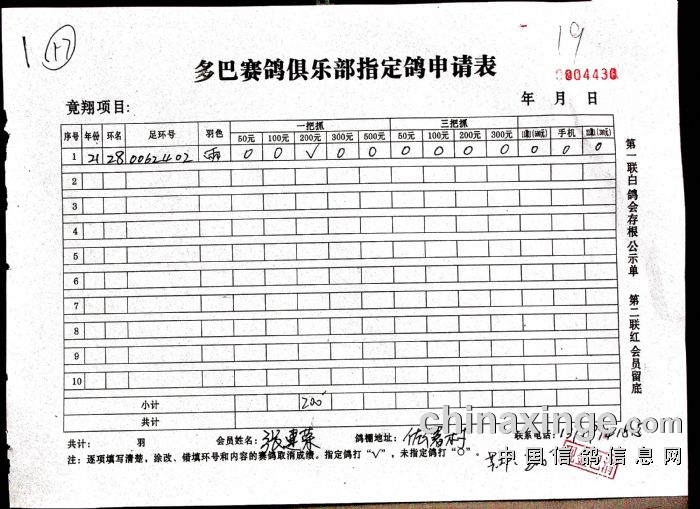 1 (17)
19
多巴赛鸽俱乐部指定鸽申请表
0004430
竟翔项目:
年 月 日
一把抓 三把抓
序号 年份 环名 足环号 羽色 50元 100元 200元 300元 500元 50元 100元 200元 300元 手机
1 21 28 0062402 雨 0 0 √ 0 0 0 0 0 0 0 0 0
2
3
4
5
6
7
8
9
10
小计 200
共计
共计: 羽 会员姓名: 张建荣 鸽棚地址: 联系电话:
注: 逐项填写清楚,涂改、错填环号和内容的赛鸽取消成绩。指定鸽打“√”,未指定鸽打“O”。
第一联白鸽会存根公示单 第二联红会员留底
chinaxinge.com
中国信鸽信息网